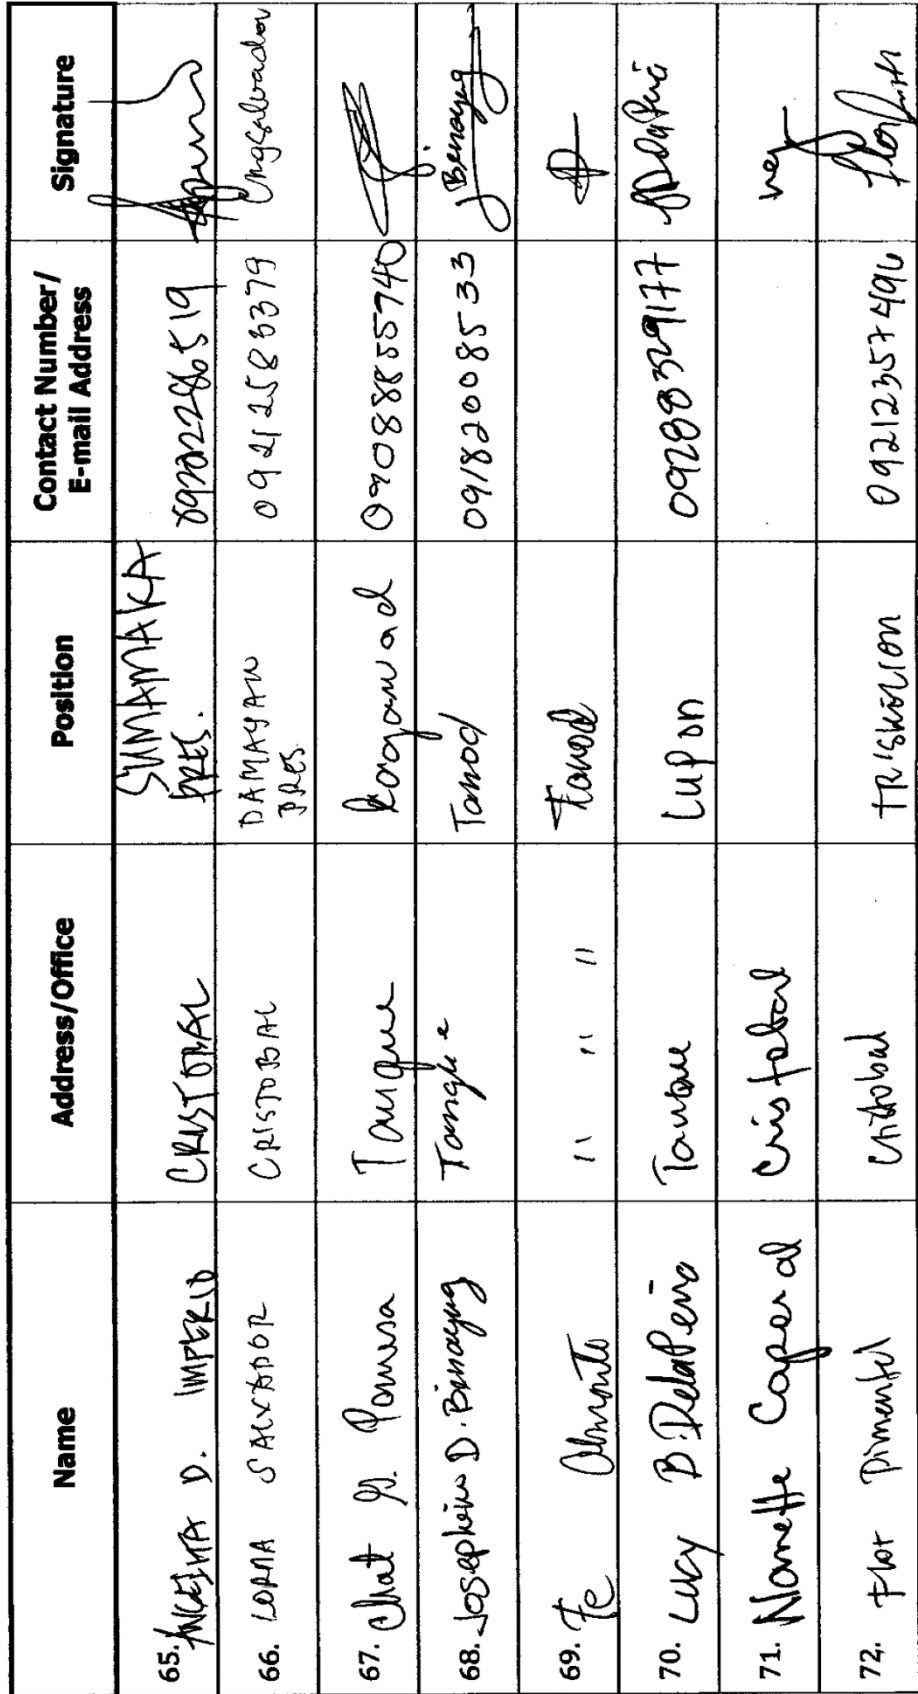 Name Address/Office Position Contact Number/ E-mail Address Signature
65. ANGELITA D. IMPERIO CRISTOBAL SUMAMAKA PRES. 09202286519
66. LORNA SALVADOR CRISTOBAL DAMAYAN PRES. 09212583379 Lngsalvador
67. Chat Tanque Kagawad 09088855740
68. Josephine D. Benayug Tanque Tanod 09182008533 JBenayug
69. Fe Almonte " " " Tanod
70. Lucy B. Dela Peña Tanque Lupon 09288329177
71. Nanette Caparal Cristobal
72. Flor Pimentel Cristobal TRISKELION 09212357496